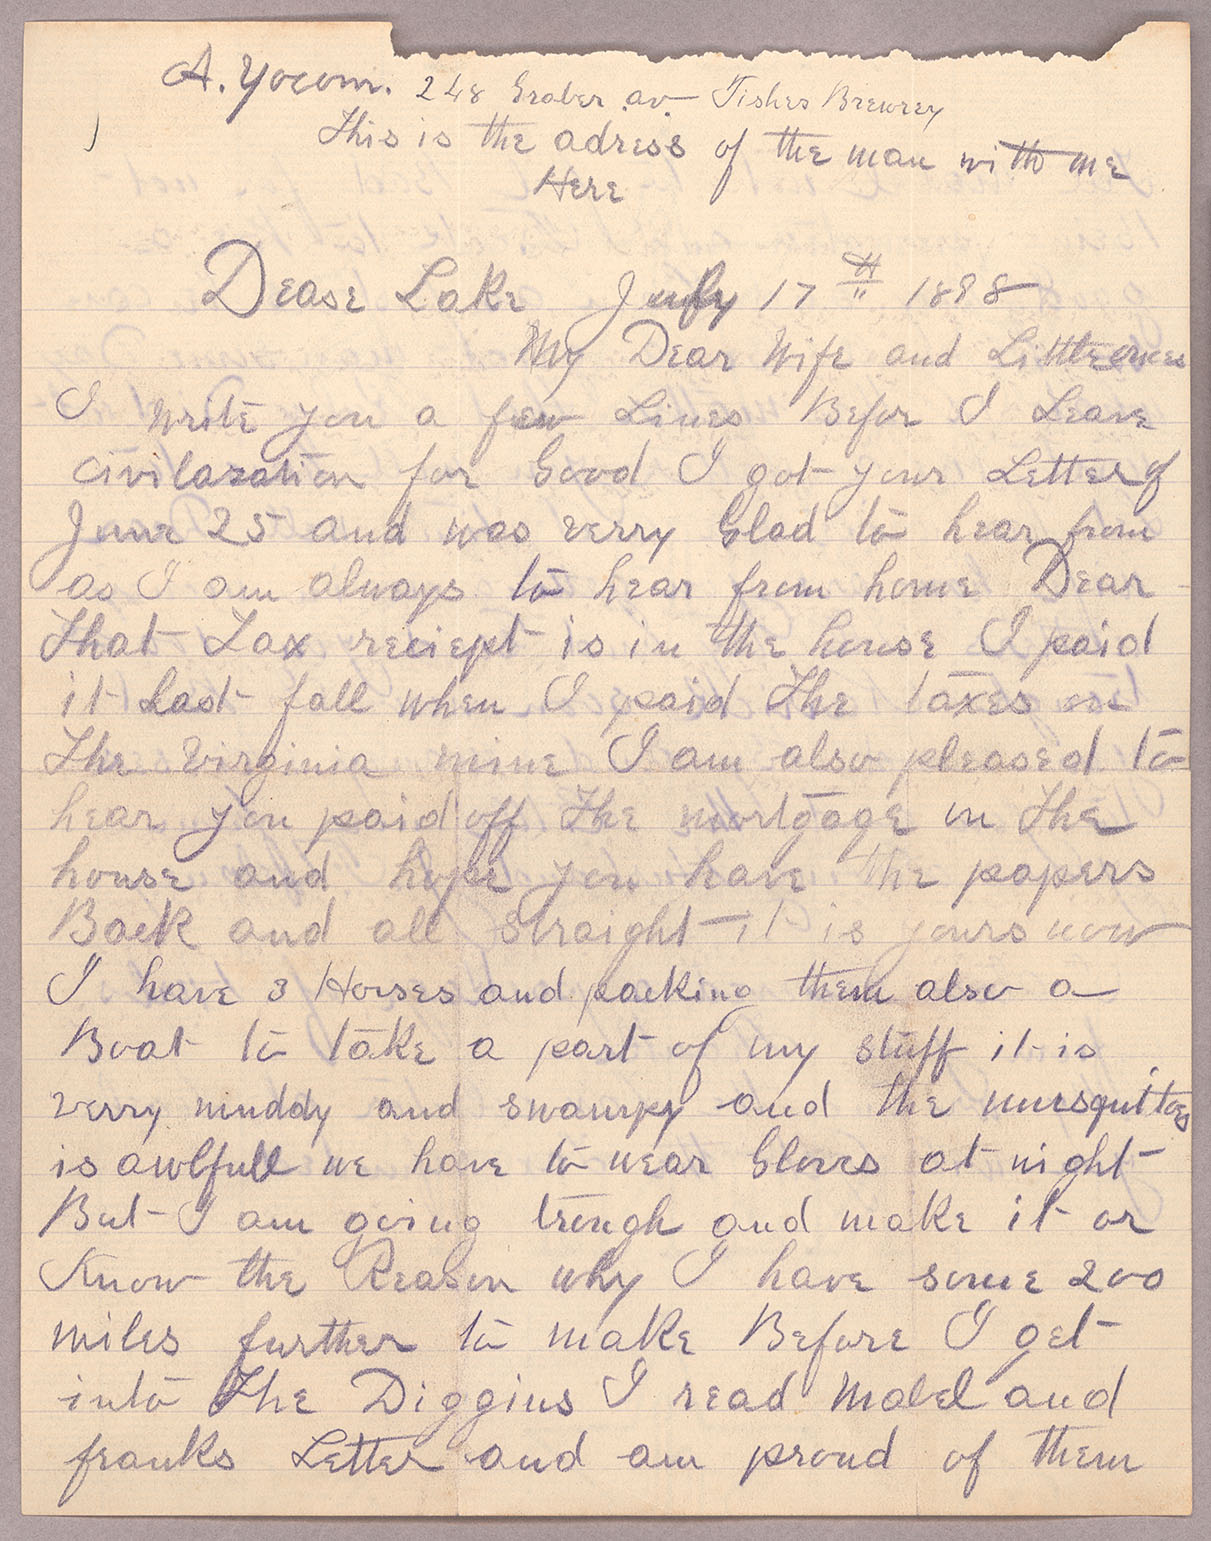 A. Yocom. 248 Graber av Fisher Brewrey
This is the adress of the man with me
Here
Dease Lake July 17th 1898
My Dear Wife and Little ones
I write you a few Lines Befor I Leave
Civilazation for Good I got your Letter of
June 25 and was verry Glad to hear from
as I am always to hear from home Dear
That Tax reciept is in the house I paid
it Last fall when I paid the taxes on
The Virginia mine I am also pleased to
hear you paid off the mortgage on the
house and hope you have the papers
Back and all straight it is yours now
I have 3 Horses and packing them also a
Boat to take a part of my stuff it is
verry muddy and swampy and the musquittoes
is awlfull we have to wear Gloves at night
But I am going trough and make it or
Know the Reason why I have some 200
miles further to make Before I get
into The Diggins I read Mabel and
franks Letter and am proud of them